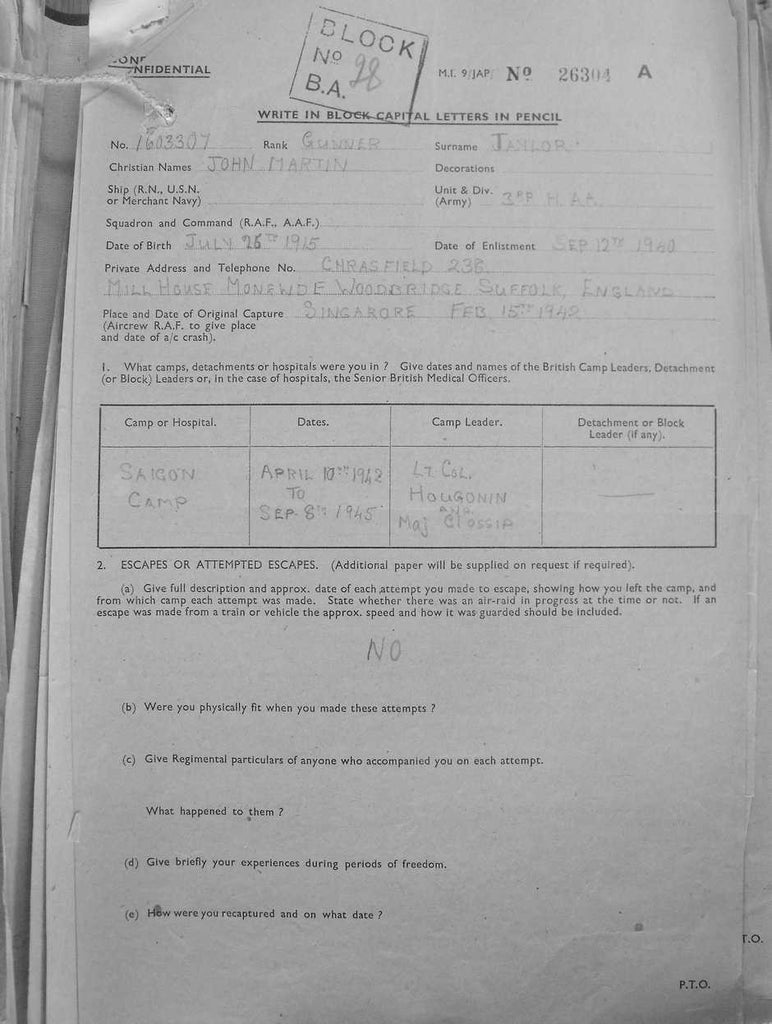 BLOCK
No 98
B.A.
CONF
NFIDENTIAL
M.I. 9/JAP No 26304 A
WRITE IN BLOCK CAPITAL LETTERS IN PENCIL
No. 1603307 Rank GUNNER Surname TAYLOR
Christian Names JOHN MARTIN Decorations
Ship (R.N., U.S.N. Unit & Div. 3RD H.AA.
or Merchant Navy) (Army)
Squadron and Command (R.A.F., A.A.F.)
Date of Birth JULY 26TH 1915 Date of Enlistment SEP 12TH 1940
Private Address and Telephone No. CHRASFIELD 238
MILL HOUSE MONEWDE WOODBRIDGE SUFFOLK, ENGLAND
Place and Date of Original Capture SINGAPORE FEB 15TH 1942
(Aircrew R.A.F. to give place
and date of a/c crash).
1. What camps, detachments or hospitals were you in ? Give dates and names of the British Camp Leaders, Detachment
(or Block) Leaders or, in the case of hospitals, the Senior British Medical Officers.
Camp or Hospital. Dates. Camp Leader. Detachment or Block
Leader (if any).
SAIGON APRIL 10TH 1942 LT COL.
CAMP TO HOUGONIN
SEP 8TH 1945 AND
MAJ
2. ESCAPES OR ATTEMPTED ESCAPES. (Additional paper will be supplied on request if required).
(a) Give full description and approx. date of each attempt you made to escape, showing how you left the camp, and
from which camp each attempt was made. State whether there was an air-raid in progress at the time or not. If an
escape was made from a train or vehicle the approx. speed and how it was guarded should be included.
NO
(b) Were you physically fit when you made these attempts ?
(c) Give Regimental particulars of anyone who accompanied you on each attempt.
What happened to them ?
(d) Give briefly your experiences during periods of freedom.
(e) How were you recaptured and on what date ?
T.O.
P.T.O.